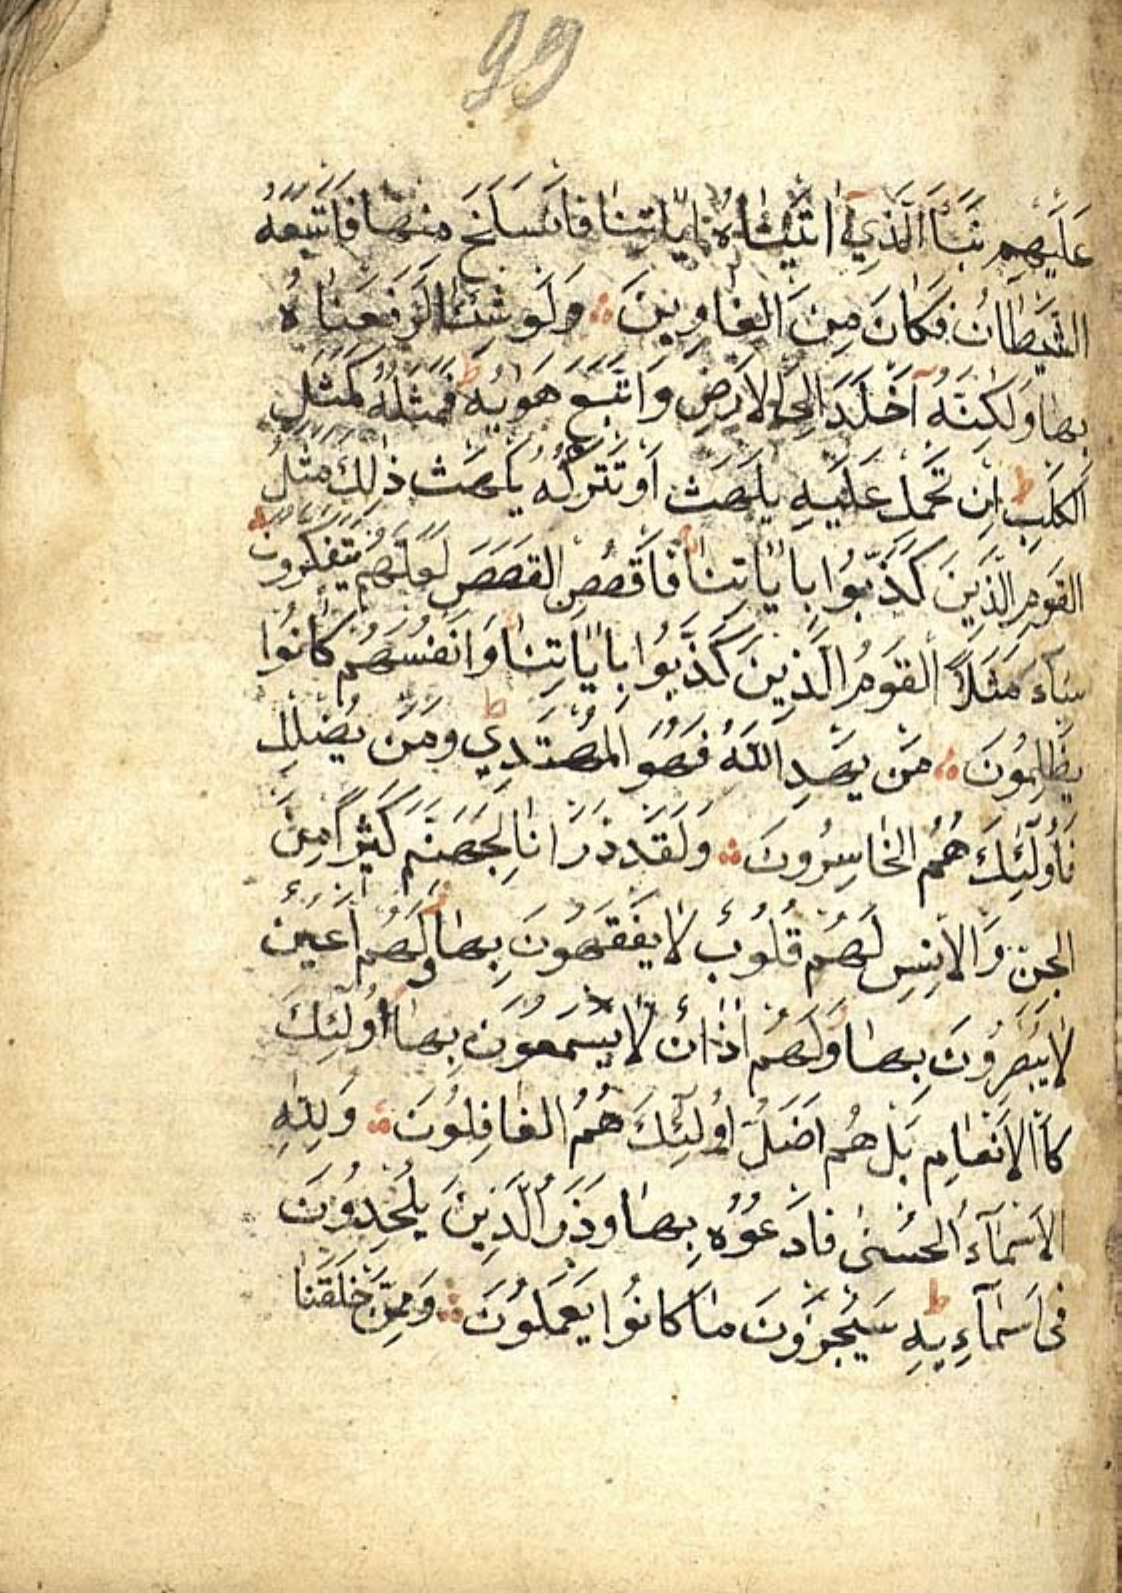 99
عَلَيْهِم نَبَأَ الَّذِي اٰتَيْنَاهُ اٰيٰاتِنٰا فَانْسَلَخَ مِنْهٰا فَاَتْبَعَهُ
الشَّيْطَانُ فَكَانَ مِنَ الغٰاوِينَ وَلَو شِئنٰا لَرَفَعْنٰاهُ
بِهٰا وَلٰكِنَّهُ اَخْلَدَ اِلَى الاَرْضِ وَاتَّبَعَ هَوٰيهُ ط فَمَثَلُهُ كَمَثَلِ
الكَلبِ ط اِن تَحْمِل عَلَيْهِ يَلْهَث اَوْ تَتْرُكْهُ يَلْهَث ذٰلِكَ مَثَلُ
القَوْمِ الَّذِينَ كَذَّبُوا بِاٰيٰاتِنٰا فَاقْصُصِ القَصَصَ لَعَلَّهُم يَتَفَكَّرُونَ
سٰآءَ مَثَلًا القَوْمُ الَّذِينَ كَذَّبُوا بِاٰيٰاتِنٰا وَاَنْفُسَهُم كٰانُوا
يَظْلِمُونَ مَن يَهدِ اللّٰهُ فَهُوَ المُهْتَدِي ط وَمَن يُضْلِل
فَاُولٰئِكَ هُمُ الخٰاسِرُونَ وَلَقَد ذَرَانٰا لِجَهَنَّمَ كَثِيرًا مِنَ
الجِنِّ وَالاِنْسِ لَهُم قُلُوبٌ لاٰ يَفْقَهُونَ بِهٰا وَلَهُم اَعْيُنٌ
لاٰ يُبْصِرُونَ بِهٰا وَلَهُم اٰذٰانٌ لاٰ يَسْمَعُونَ بِهٰا اُولٰئِكَ
كَاالاَنْعٰامِ بَل هُم اَضَلُّ اُولٰئِكَ هُمُ الغٰافِلُونَ وَلِلّٰهِ
الاَسْمٰآءُ الحُسْنٰى فَادْعُوهُ بِهٰا وَذَرُ الَّذِينَ يُلْحِدُونَ
فِى اَسْمٰآءِيهِ ط سَيُجْزَوْنَ مٰا كٰانُوا يَعْمَلُونَ وَمِمَّن خَلَقْنٰا